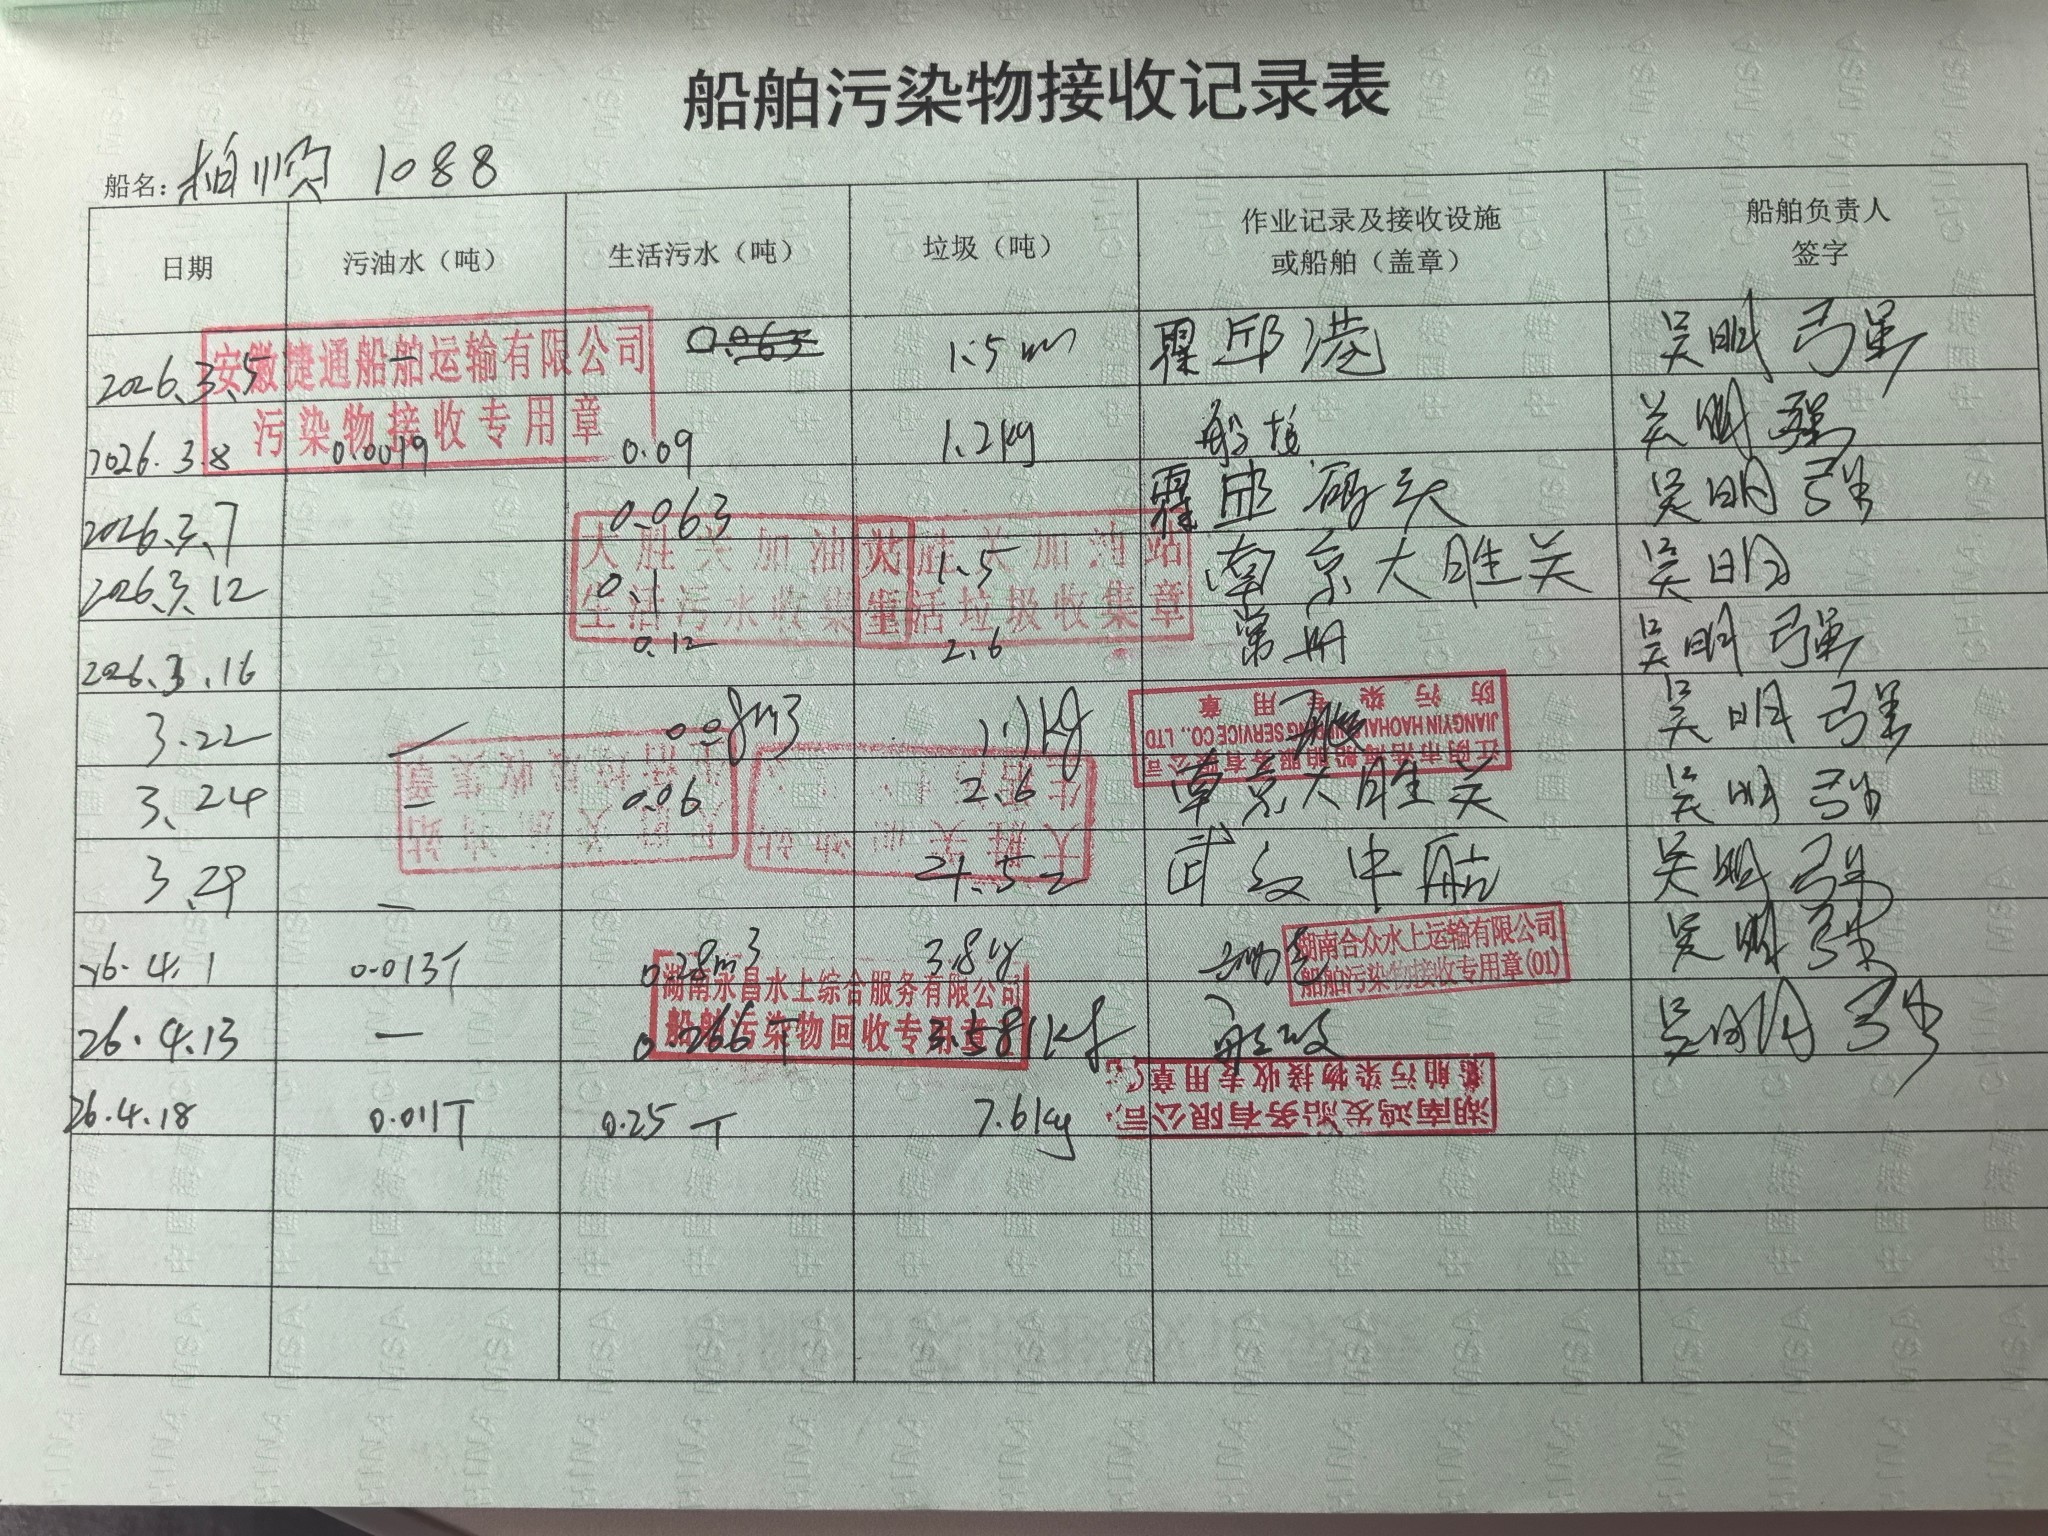 船舶污染物接收记录表
船名: 柏顺 1088
日期 污油水（吨） 生活污水（吨） 垃圾（吨） 作业记录及接收设施或船舶（盖章） 船舶负责人签字
2026.3.5 — 0.063 1.5 霍邱港 吴明强
安徽捷通船舶运输有限公司
污染物接收专用章
2026.3.8 0.0079 0.09 1.2kg 吴明强
2026.3.7 0.063 霍邱码头 吴明强
大胜关加油站
生活污水收集章
大胜关加油站
生活垃圾收集章
2026.3.12 0.1 1.5 南京大胜关 吴明
2026.3.16 0.12 2.6 常州 吴明强
3.22 — 0.08m3 1.1kg 吴明强
江阴市浩海船舶服务有限公司
JIANGYIN HAOHAI SHIPPING SERVICE CO., LTD
防污染专用章
3.24 — 0.06 2.6 南京大胜关 吴明强
3.29 — 吴明强
26.4.1 0.013T 0.28m3 3.8kg 吴明强
湖南合众水上运输有限公司
船舶污染物接收专用章(01)
湖南永昌水上综合服务有限公司
船舶污染物回收专用章
26.4.13 — 0.266T 3.581kg 吴明强
26.4.18 0.011T 0.25T 7.61kg
湖南鸿发船务有限公司
船舶污染物接收专用章